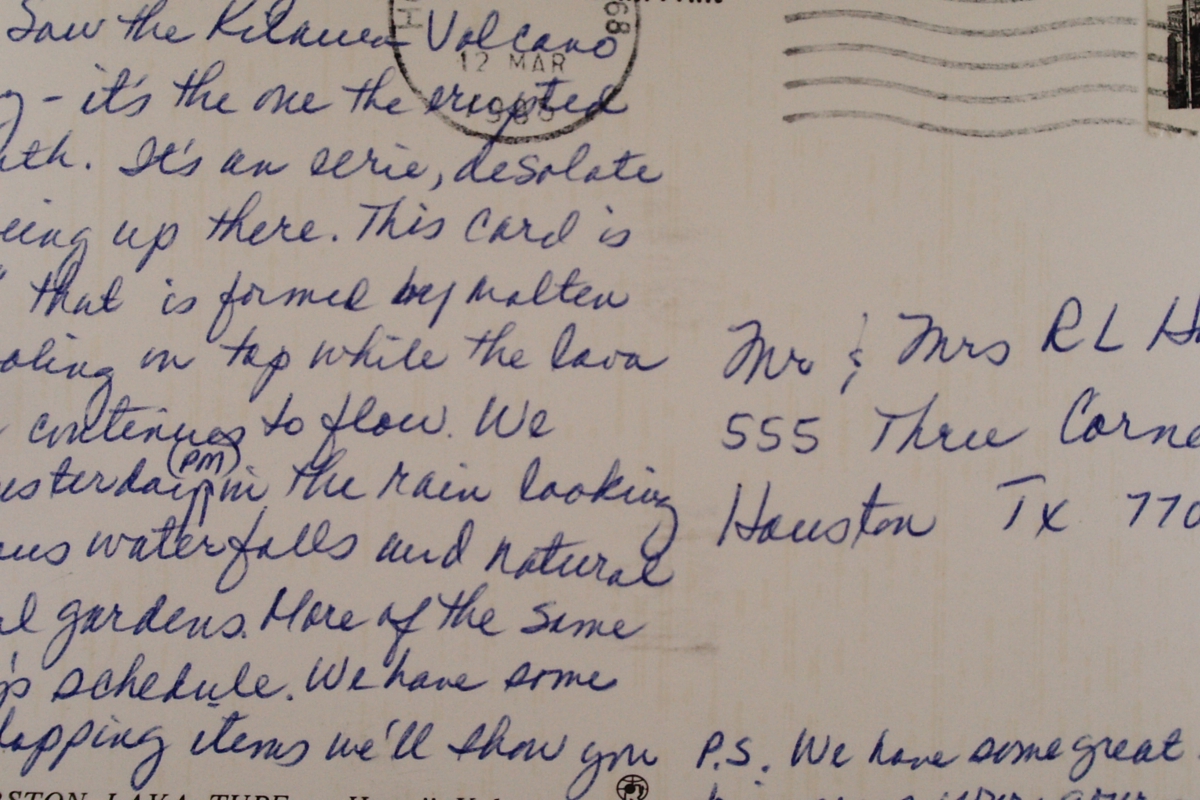 Saw the Kilauea Volcano
- it's the one the erupted
It's an eerie, desolate
up there. This card is
that is formed by molten
on top while the lava
continues to flow. We
(PM)
in the rain looking
waterfalls and natural
gardens. More of the same
schedule. We have some
items we'll show you
12 MAR
68
Mr & Mrs R L H
555 Three Corne
Houston Tx 770
P.S. We have some great
LAVA TUBE